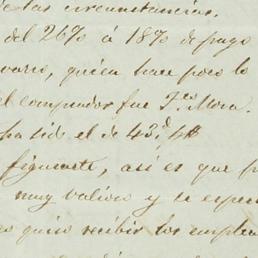 de las circunstancias.
del 26% á 18% de pago
vario, quien hace poco lo
el comprador fue Fco Mora.
ha sido el de 43
figurarte, así es que p
muy valioso y se esper
quiso recibir los emplea